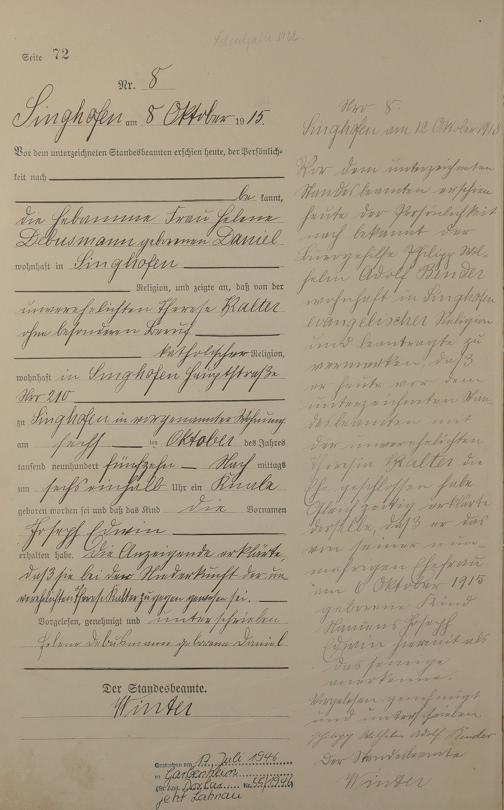 Seite 72
Nr. 8
Singhofen am 8 Oktober 1915.
Vor dem unterzeichneten Standesbeamten erschien heute, der Persönlich-
keit nach
be kannt,
die Hebamme Frau Helene
Debusmann geborenen Daniel
wohnhaft in Singhofen
Religion, und zeigte an, daß von der
unverehelichten Therese Kalter
ohne besonderen Beruf
katholischer Religion,
wohnhaft in Singhofen Hauptstraße
Nro 210
zu Singhofen in vorgenannter Wohnung
am sechs ten Oktober des Jahres
tausend neunhundert fünfzehn Nach mittags
um sechs einhalb Uhr ein Knabe
geboren worden sei und daß das Kind die Vornamen
Joseph Edwin
erhalten habe. Die Anzeigende erklärte,
daß sie bei der Niederkunft der un
verehelichten Therese Kalter zugegen gewesen sei.
Vorgelesen, genehmigt und unterschrieben
Helene Debusmann geborene Daniel
Der Standesbeamte.
Winter
Gestorben am 17. Juli 1946
in
Nr. 55/1946
jetzt Lahnau
Nro 8.
Singhofen am 12 Oktober
Vor dem unterzeichneten
Standesbeamten erschien
heute der Persönlichkeit
nach bekannt der
Philipp Wil-
helm Adolf Binder
wohnhaft in Singhofen
evangelischer Religion
und beantragte zu
vermerken, daß
er heute vor dem
unterzeichneten Stan-
desbeamten mit
der unverehelichten
Theresia Kalter die
Ehe geschlossen habe
Gleichzeitig erklärte
derselbe, daß er das
von seiner nun-
mehrigen Ehefrau
am 6 Oktober 1915
geborene Kind
Namens Joseph
Edwin hiermit als
das seinige
anerkenne.
Vorgelesen genehmigt
und unterschrieben
Philipp Wilhelm Adolf Binder
Der Standesbeamte
Winter